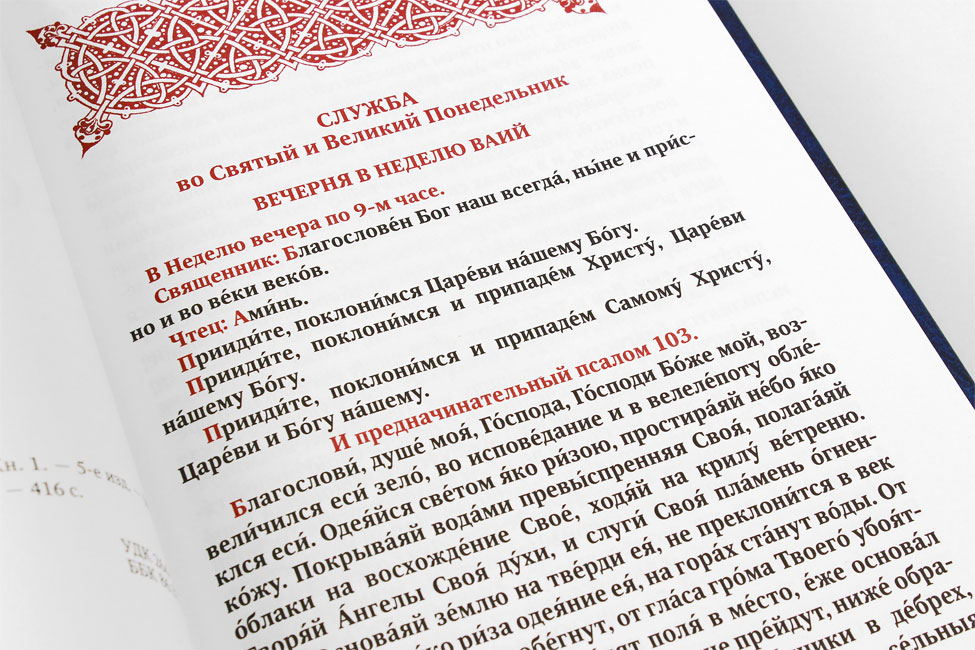 СЛУЖБА
во Святый и Великий Понедельник
ВЕЧЕРНЯ В НЕДЕЛЮ ВАИЙ
В Неделю вечера по 9-м часе.
Священник: Благослове́н Бог наш всегда́, ны́не и при́с-
но и во ве́ки веко́в.
Чтец: Ами́нь.
Прииди́те, поклони́мся Царе́ви на́шему Бо́гу.
Прииди́те, поклони́мся и припаде́м Христу́, Царе́ви
на́шему Бо́гу.
Прииди́те, поклони́мся и припаде́м Самому́ Христу́,
Царе́ви и Бо́гу на́шему.
И предначинательный псалом 103.
Благослови́, душе́ моя́, Го́спода, Го́споди Бо́же мой, воз-
вели́чился еси́ зело́, во испове́дание и в велеле́поту обле́-
клся еси́. Одея́йся све́том я́ко ри́зою, простира́яй не́бо я́ко
ко́жу. Покрыва́яй вода́ми превы́спренняя Своя́, полага́яй
о́блаки на восхожде́ние Свое́, ходя́й на крилу́ ве́треню.
Творя́й А́нгелы Своя́ ду́хи, и слуги́ Своя́ пла́мень о́гнен-
Основа́яй зе́млю на тве́рди ея́, не преклони́тся в век
ко ри́за одея́ние ея́, на гора́х ста́нут во́ды. От
бе́гнут, от гла́са гро́ма Твоего́ убоя́т-
поля́ в ме́сто, е́же основа́л
не пре́йдут, ниже́ обра-
в де́брех,
се́льныя
Кн. 1. — 5-е изд.
— 416 с.
УДК
ББК